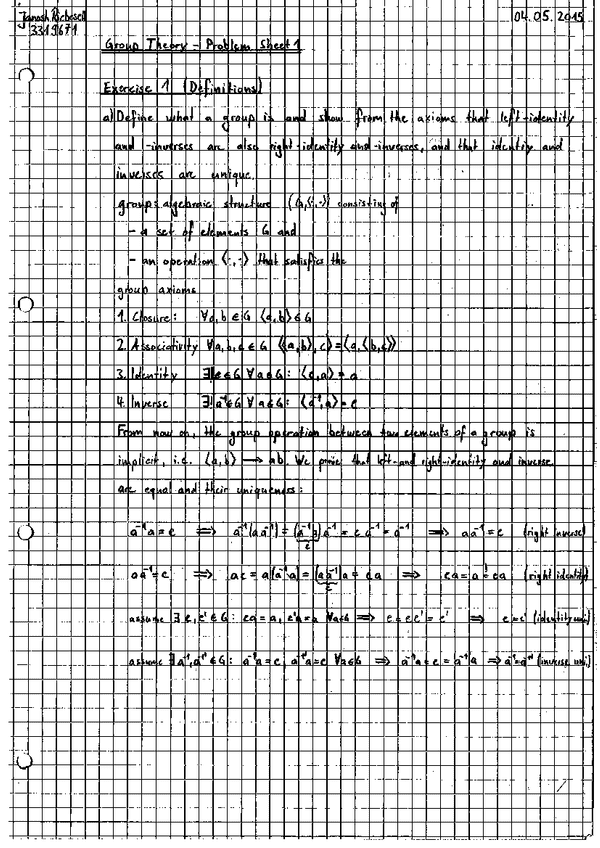 Janosh Riebesell
3319671
04.05.2015
Group Theory - Problem Sheet 1
Exercise 1 (Definitions)
a) Define what a group is and show from the axioms that left-identity
and -inverses are also right-identity and -inverses, and that identity and
inverses are unique.
group: algebraic structure (G,⟨·,·⟩) consisting of
- a set of elements G and
- an operation ⟨·,·⟩ that satisfies the
group axioms
1. Closure: ∀a,b∈G ⟨a,b⟩∈G
2. Associativity ∀a,b,c∈G ⟨⟨a,b⟩,c⟩=⟨a,⟨b,c⟩⟩
3. Identity ∃e∈G ∀a∈G: ⟨e,a⟩=a
4. Inverse ∃a⁻¹∈G ∀a∈G: ⟨a⁻¹,a⟩=e
From now on, the group operation between two elements of a group is
implicit, i.e. ⟨a,b⟩ → ab. We prove that left- and right-identity and inverse
are equal and their uniqueness:
a⁻¹a=e ⟹ a⁻¹(aa⁻¹)=(a⁻¹a)a⁻¹=ea⁻¹=a⁻¹ ⟹ aa⁻¹=e (right inverse)
e
aa⁻¹=e ⟹ ae=a(a⁻¹a)=(aa⁻¹)a=ea ⟹ ea=a=ea (right identity)
e
assume ∃e,e'∈G: ea=a, e'a=a ∀a∈G ⟹ e=ee'=e' ⟹ e=e' (identity uni.)
assume ∃a⁻¹,a⁻¹'∈G: a⁻¹a=e, a⁻¹'a=e ∀a∈G ⟹ a⁻¹a=e=a⁻¹'a ⟹ a⁻¹=a⁻¹' (inverse uni.)